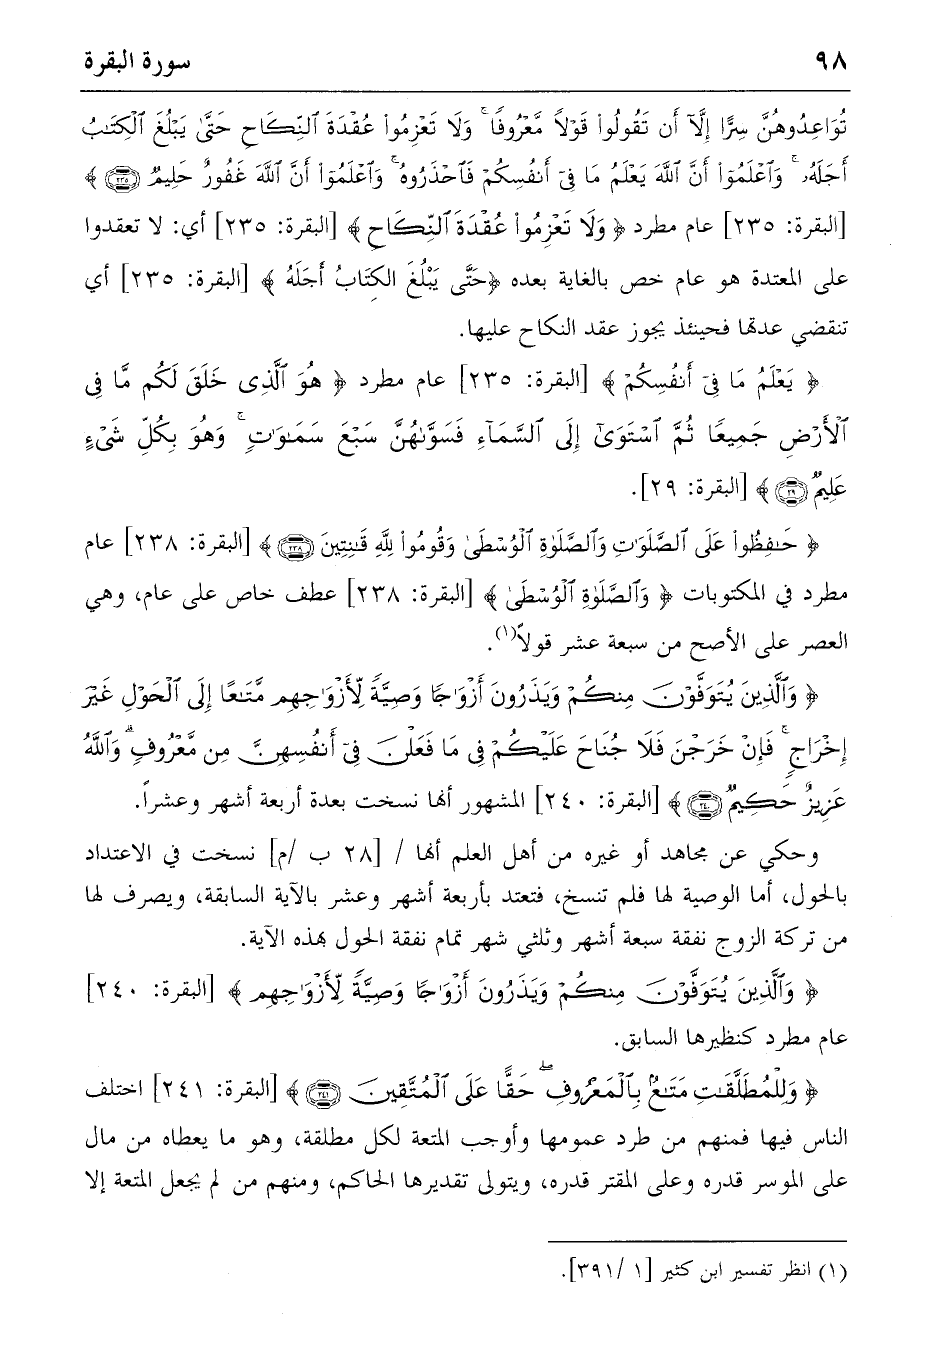 ٩٨ سورة البقرة
تُوَاعِدُوهُنَّ سِرًّا إِلَّآ أَن تَقُولُوا۟ قَوْلًا مَّعْرُوفًا ۚ وَلَا تَعْزِمُوا۟ عُقْدَةَ ٱلنِّكَاحِ حَتَّىٰ يَبْلُغَ ٱلْكِتَٰبُ
أَجَلَهُۥ ۚ وَٱعْلَمُوٓا۟ أَنَّ ٱللَّهَ يَعْلَمُ مَا فِىٓ أَنفُسِكُمْ فَٱحْذَرُوهُ ۚ وَٱعْلَمُوٓا۟ أَنَّ ٱللَّهَ غَفُورٌ حَلِيمٌ ٢٣٥ ﴾
[البقرة: ٢٣٥] عام مطرد ﴿ وَلَا تَعْزِمُوا۟ عُقْدَةَ ٱلنِّكَاحِ ﴾ [البقرة: ٢٣٥] أي: لا تعقدوا
على المعتدة هو عام خص بالغاية بعده ﴿حَتَّى يَبْلُغَ الكِتَابُ أَجَلَهُ ﴾ [البقرة: ٢٣٥] أي
تنقضي عدتها فحينئذ يجوز عقد النكاح عليها.
﴿ يَعْلَمُ مَا فِىٓ أَنفُسِكُمْ ﴾ [البقرة: ٢٣٥] عام مطرد ﴿ هُوَ ٱلَّذِى خَلَقَ لَكُم مَّا فِى
ٱلْأَرْضِ جَمِيعًا ثُمَّ ٱسْتَوَىٰٓ إِلَى ٱلسَّمَآءِ فَسَوَّىٰهُنَّ سَبْعَ سَمَٰوَٰتٍ ۚ وَهُوَ بِكُلِّ شَىْءٍ
عَلِيمٌ ٢٩ ﴾ [البقرة: ٢٩].
﴿ حَٰفِظُوا۟ عَلَى ٱلصَّلَوَٰتِ وَٱلصَّلَوٰةِ ٱلْوُسْطَىٰ وَقُومُوا۟ لِلَّهِ قَٰنِتِينَ ٢٣٨ ﴾ [البقرة: ٢٣٨] عام
مطرد في المكتوبات ﴿ وَٱلصَّلَوٰةِ ٱلْوُسْطَىٰ ﴾ [البقرة: ٢٣٨] عطف خاص على عام، وهي
العصر على الأصح من سبعة عشر قولاً(١).
﴿ وَٱلَّذِينَ يُتَوَفَّوْنَ مِنكُمْ وَيَذَرُونَ أَزْوَٰجًا وَصِيَّةً لِّأَزْوَٰجِهِم مَّتَٰعًا إِلَى ٱلْحَوْلِ غَيْرَ
إِخْرَاجٍ ۚ فَإِنْ خَرَجْنَ فَلَا جُنَاحَ عَلَيْكُمْ فِى مَا فَعَلْنَ فِىٓ أَنفُسِهِنَّ مِن مَّعْرُوفٍ ۗ وَٱللَّهُ
عَزِيزٌ حَكِيمٌ ٢٤٠ ﴾ [البقرة: ٢٤٠] المشهور أنها نسخت بعدة أربعة أشهر وعشراً.
وحكي عن مجاهد أو غيره من أهل العلم أنها / [٢٨ ب /م] نسخت في الاعتداد
بالحول، أما الوصية لها فلم تنسخ، فتعتد بأربعة أشهر وعشر بالآية السابقة، ويصرف لها
من تركة الزوج نفقة سبعة أشهر وثلثي شهر تمام نفقة الحول بهذه الآية.
﴿ وَٱلَّذِينَ يُتَوَفَّوْنَ مِنكُمْ وَيَذَرُونَ أَزْوَٰجًا وَصِيَّةً لِّأَزْوَٰجِهِم ﴾ [البقرة: ٢٤٠]
عام مطرد كنظيرها السابق.
﴿ وَلِلْمُطَلَّقَٰتِ مَتَٰعٌۢ بِٱلْمَعْرُوفِ ۖ حَقًّا عَلَى ٱلْمُتَّقِينَ ٢٤١ ﴾ [البقرة: ٢٤١] اختلف
الناس فيها فمنهم من طرد عمومها وأوجب المتعة لكل مطلقة، وهو ما يعطاه من مال
على الموسر قدره وعلى المقتر قدره، ويتولى تقديرها الحاكم، ومنهم من لم يجعل المتعة إلا
(١) انظر تفسير ابن كثير [١ /٣٩١].